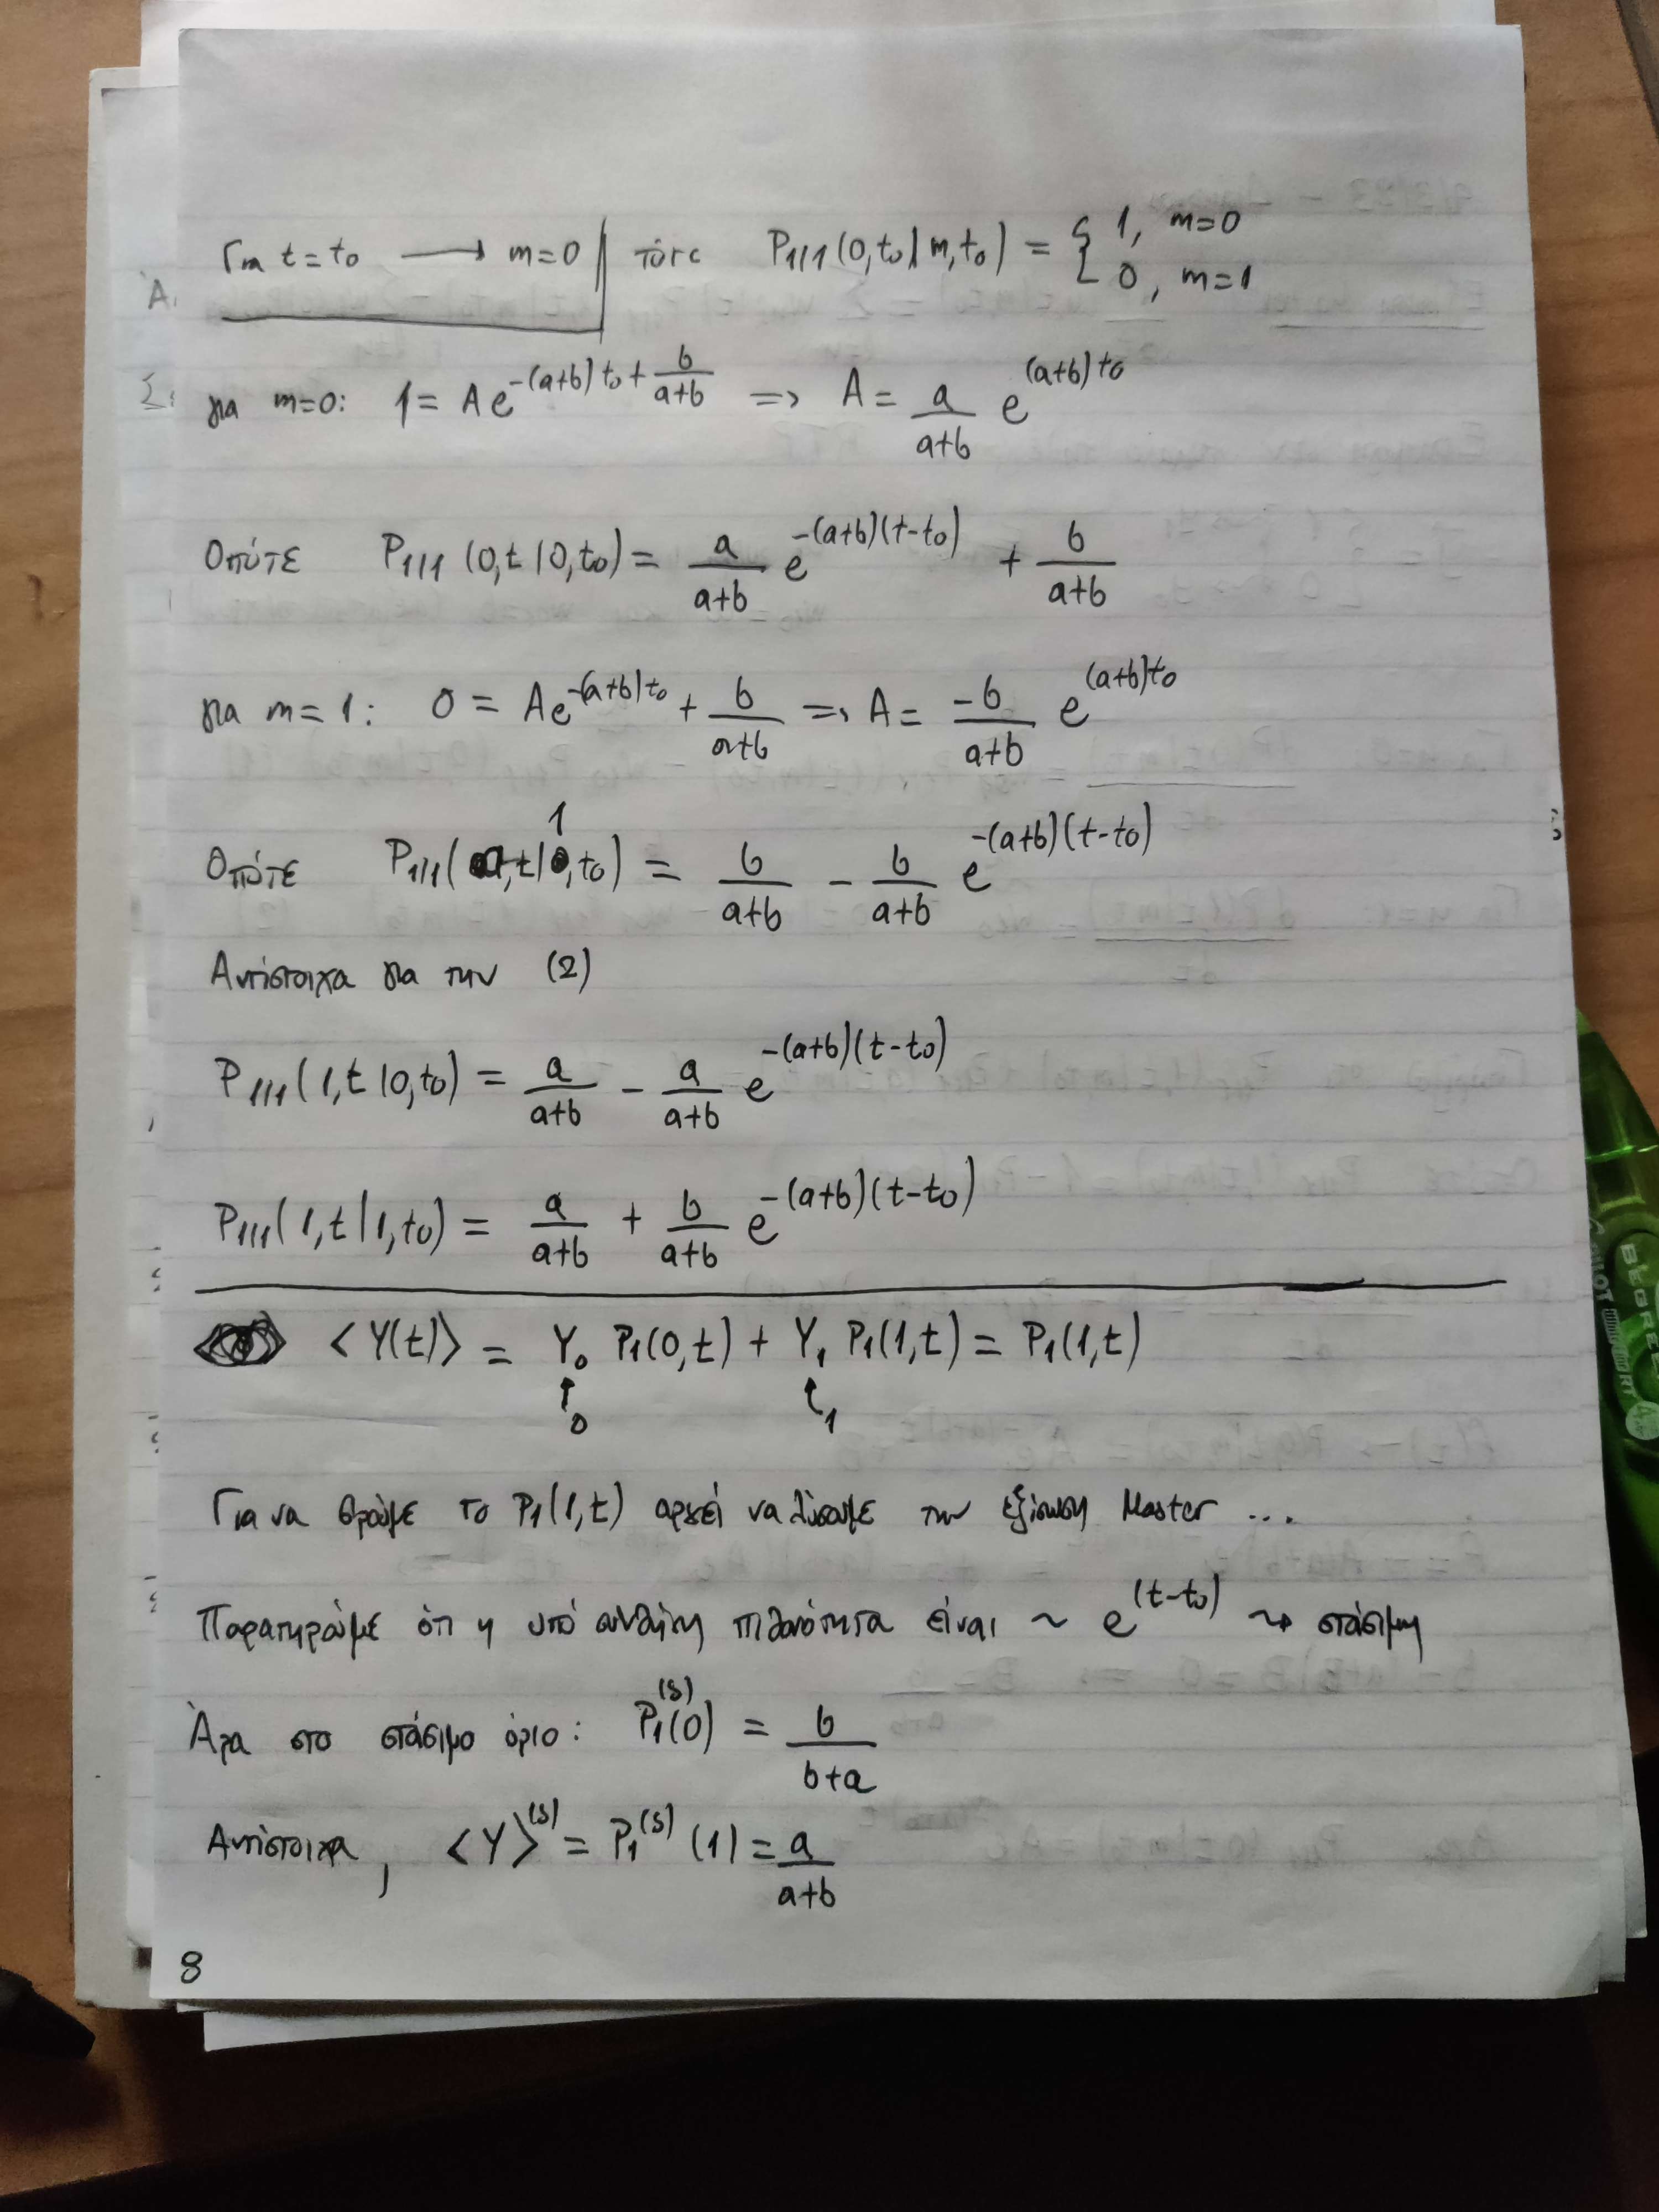 Για t=t₀ ⟶ m=0 | τότε P₁|₁(0,t₀|m,t₀) = { 1, m=0
0, m=1
για m=0: 1 = A e^{-(a+b)t₀ + b/(a+b)} => A = a/(a+b) e^{(a+b)t₀}
Οπότε P₁|₁(0,t|0,t₀) = a/(a+b) e^{-(a+b)(t-t₀)} + b/(a+b)
για m=1: 0 = A e^{-(a+b)t₀} + b/(a+b) => A = -b/(a+b) e^{(a+b)t₀}
Οπότε P₁|₁(0,t|1,t₀) = b/(a+b) - b/(a+b) e^{-(a+b)(t-t₀)}
Αντίστοιχα για την (2)
P₁|₁(1,t|0,t₀) = a/(a+b) - a/(a+b) e^{-(a+b)(t-t₀)}
P₁|₁(1,t|1,t₀) = a/(a+b) + b/(a+b) e^{-(a+b)(t-t₀)}
<Y(t)> = Y₀ P₁(0,t) + Y₁ P₁(1,t) = P₁(1,t)
0 1
Για να βρούμε το P₁(1,t) αρκεί να λύσουμε την εξίσωση Master ...
Παρατηρούμε ότι η υπό συνθήκη πιθανότητα είναι ~ e^{(t-t₀)} ⇝ στάσιμη
Άρα στο στάσιμο όριο: P₁^{(s)}(0) = b/(b+a)
Αντίστοιχα, <Y>^{(s)} = P₁^{(s)}(1) = a/(a+b)
8
PILOT BEGREEN